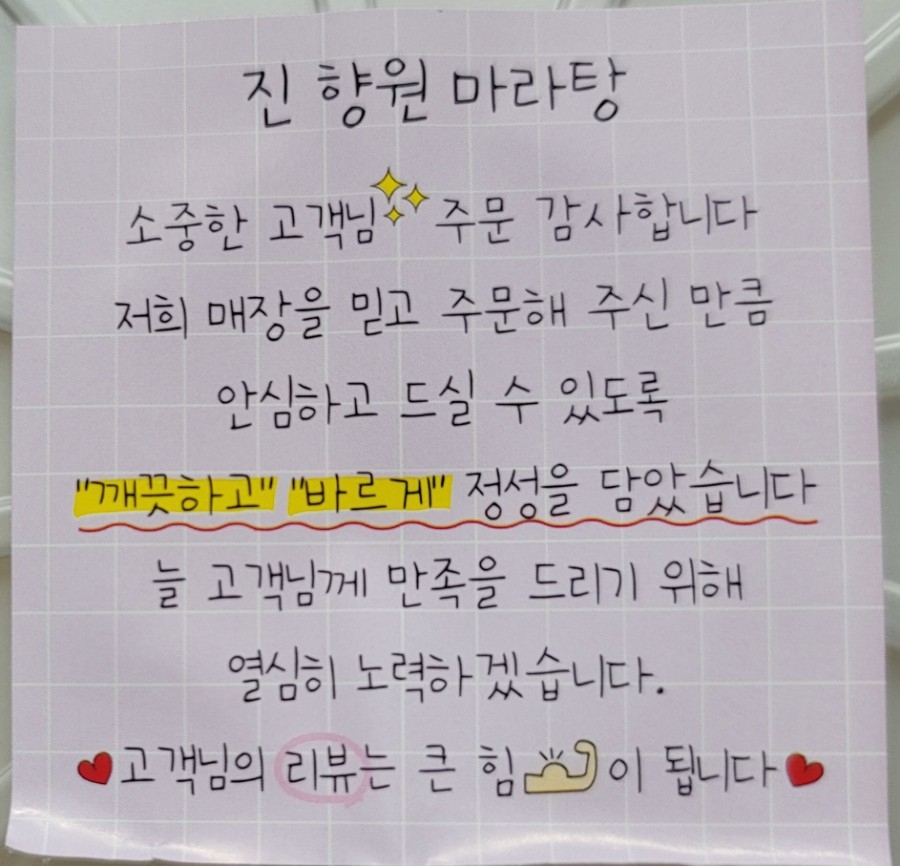 진 향원 마라탕
소중한 고객님 주문 감사합니다
저희 매장을 믿고 주문해 주신 만큼
안심하고 드실 수 있도록
"깨끗하고" "바르게" 정성을 담았습니다
늘 고객님께 만족을 드리기 위해
열심히 노력하겠습니다.
고객님의 리뷰는 큰 힘이 됩니다